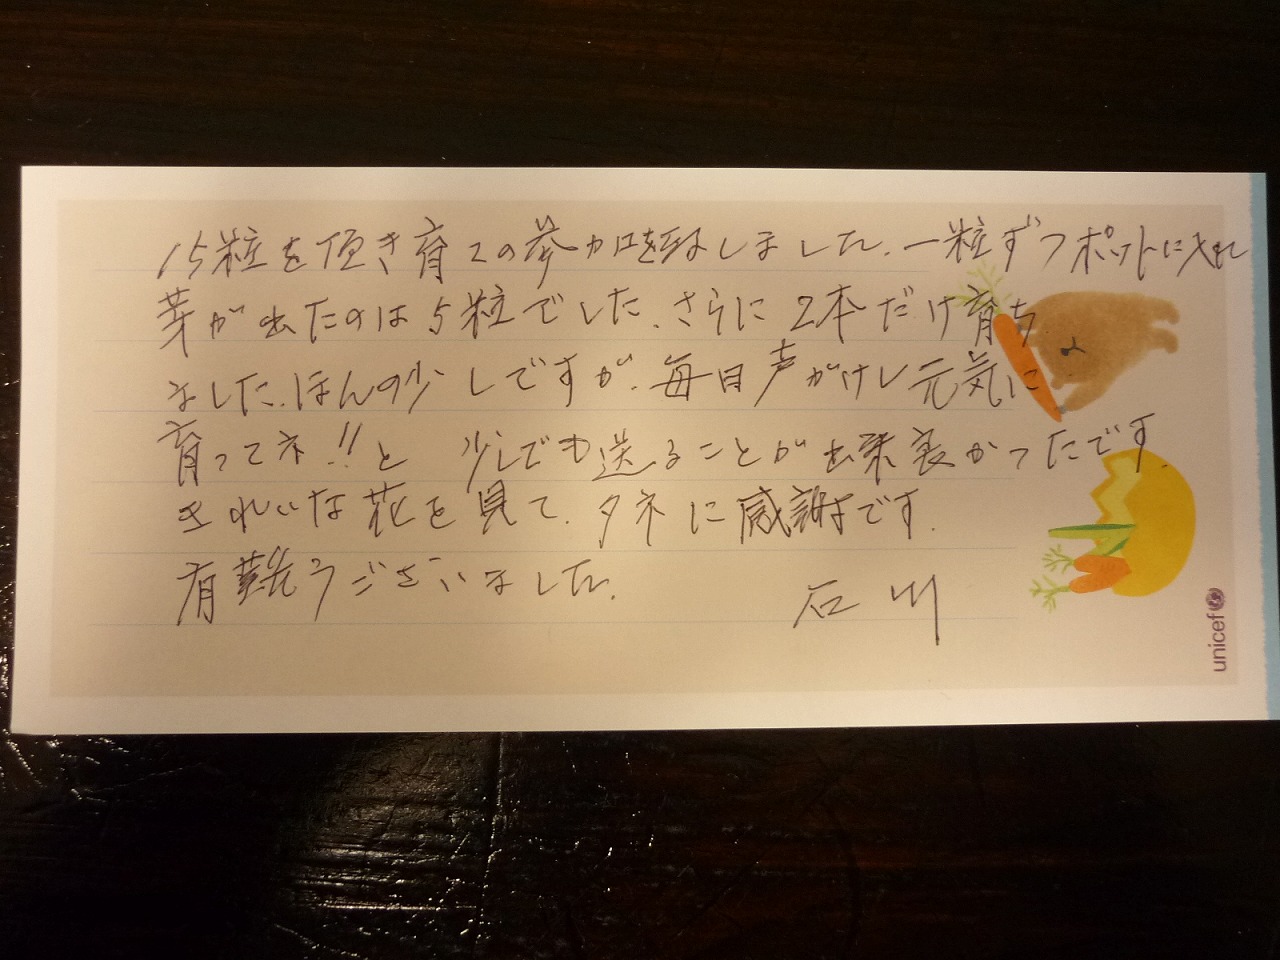 15粒を頂き育ての参加を致しました。一粒ずつポットに入れ
芽が出たのは5粒でした。さらに2本だけ育ち
ました。ほんの少しですが、毎日声がけし元気に
育ってネ!!と 少しでも送ることが出来良かったです。
きれいな花を見て、タネに感謝です。
有難うございました。 石川
unicef